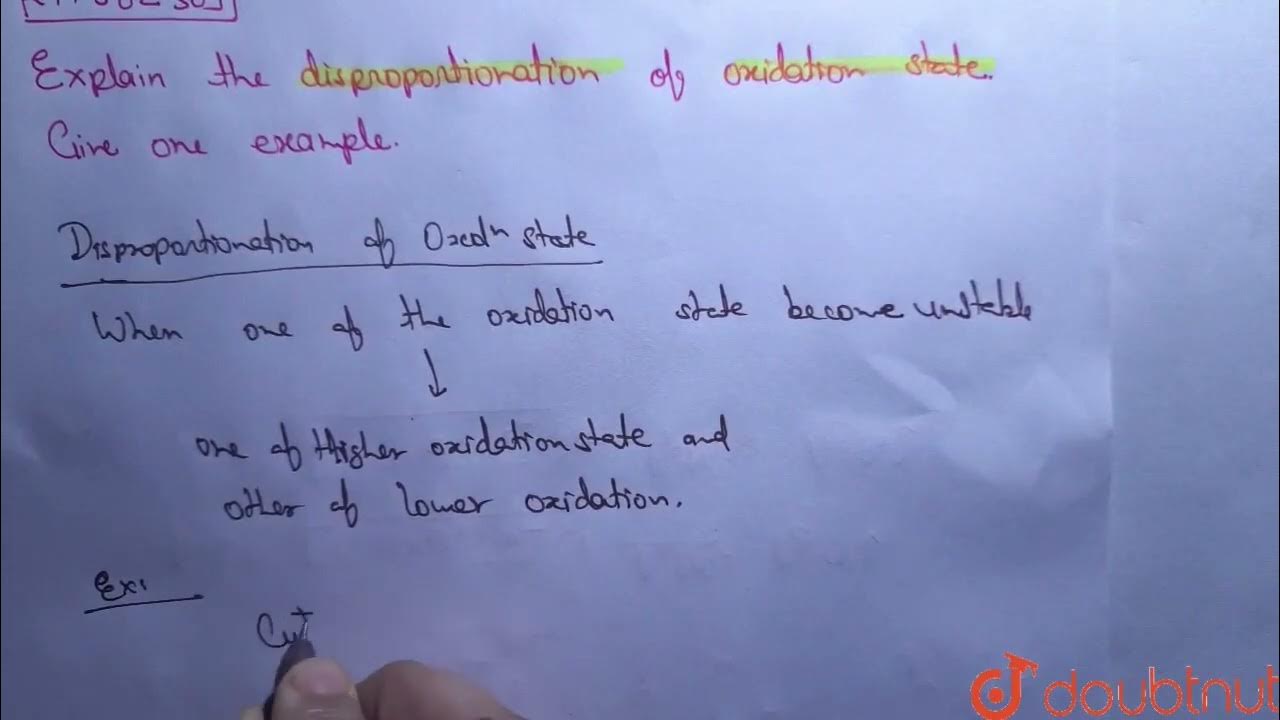 Explain the disproportionation of oxidation state.
Give one example.
Disproportionation of Oxdⁿ state
When one of the oxidation state become unstable
↓
one of Higher oxidation state and
other of lower oxidation.
Ex:
Cu⁺
doubtnut